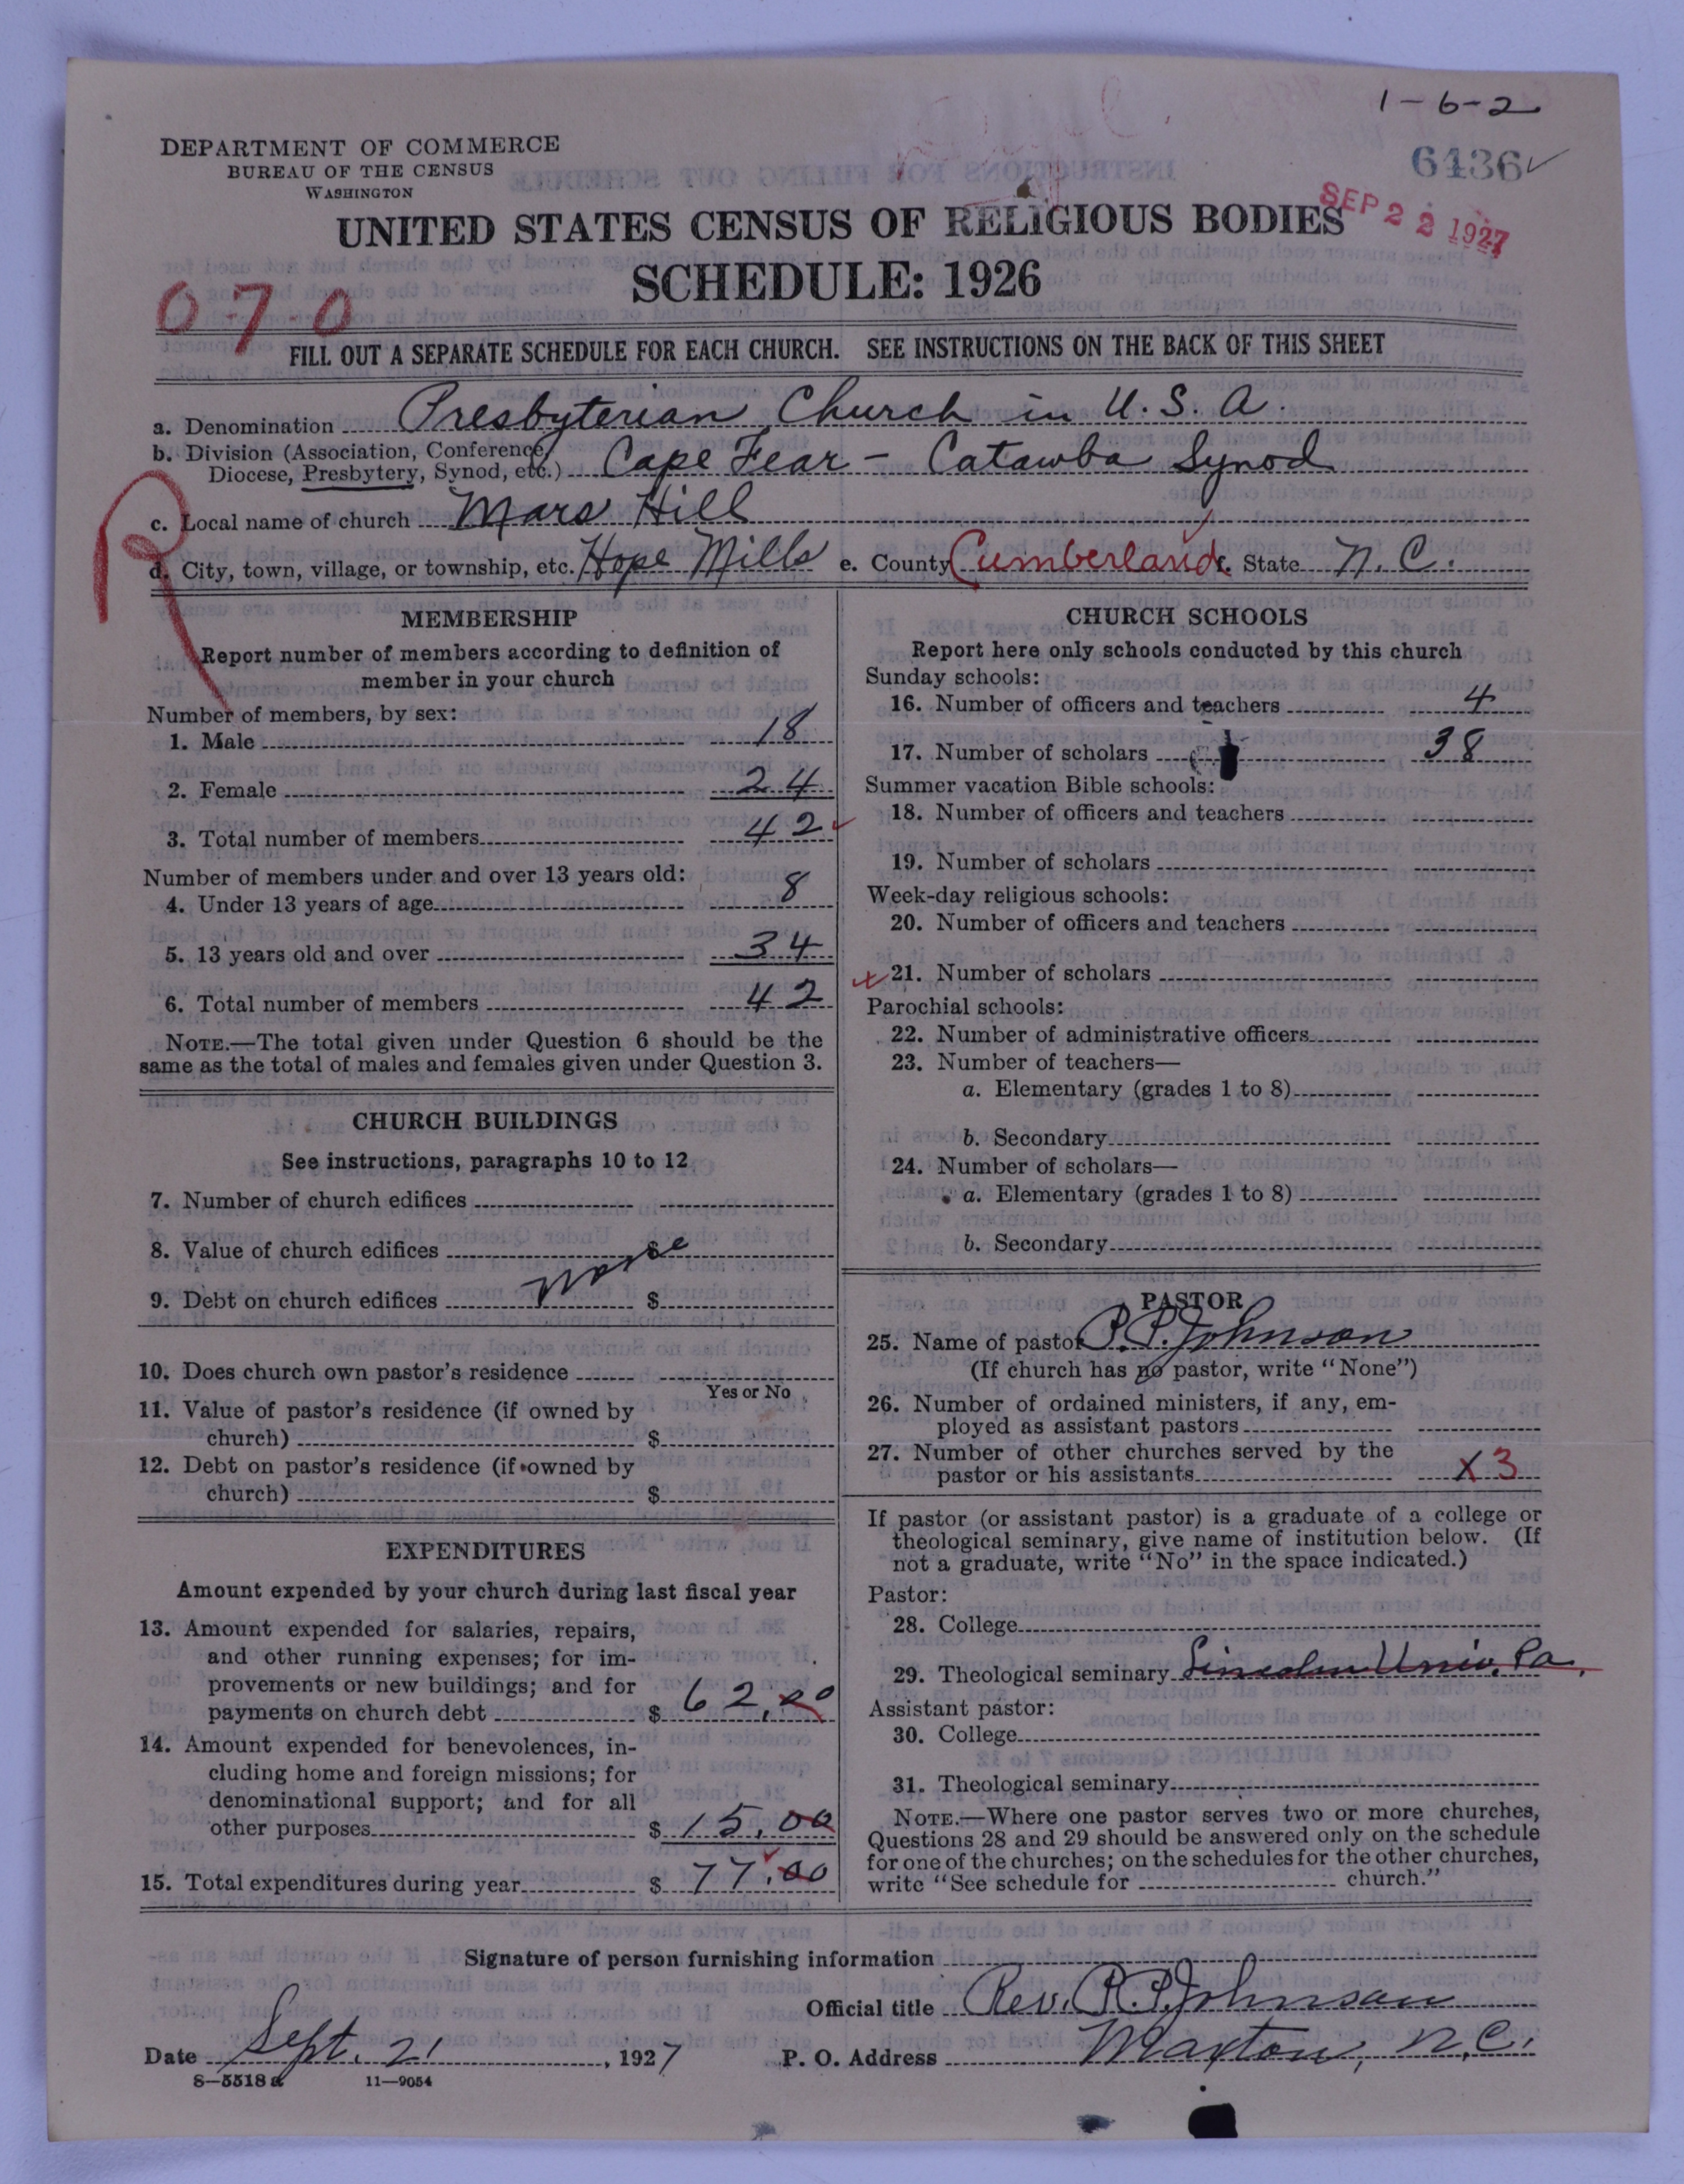 1-6-2
DEPARTMENT OF COMMERCE
BUREAU OF THE CENSUS
WASHINGTON
6436 ✓
SEP 22 1927
UNITED STATES CENSUS OF RELIGIOUS BODIES
SCHEDULE: 1926
0-7-0
FILL OUT A SEPARATE SCHEDULE FOR EACH CHURCH. SEE INSTRUCTIONS ON THE BACK OF THIS SHEET
a. Denomination Presbyterian Church in U.S.A.
b. Division (Association, Conference,
Diocese, Presbytery, Synod, etc.) Cape Fear - Catawba Synod
c. Local name of church Mars Hill
R
d. City, town, village, or township, etc. Hope Mills e. County Cumberland f. State N.C.
MEMBERSHIP
Report number of members according to definition of
member in your church
Number of members, by sex:
1. Male 18
2. Female 24
3. Total number of members 42
Number of members under and over 13 years old:
4. Under 13 years of age 8
5. 13 years old and over 34
6. Total number of members 42
NOTE.—The total given under Question 6 should be the
same as the total of males and females given under Question 3.
CHURCH BUILDINGS
See instructions, paragraphs 10 to 12
7. Number of church edifices
8. Value of church edifices $
None
9. Debt on church edifices $
10. Does church own pastor's residence
Yes or No
11. Value of pastor's residence (if owned by
church) $
12. Debt on pastor's residence (if owned by
church) $
EXPENDITURES
Amount expended by your church during last fiscal year
13. Amount expended for salaries, repairs,
and other running expenses; for im-
provements or new buildings; and for
payments on church debt $ 62.00
14. Amount expended for benevolences, in-
cluding home and foreign missions; for
denominational support; and for all
other purposes $ 15.00
15. Total expenditures during year $ 77.00
CHURCH SCHOOLS
Report here only schools conducted by this church
Sunday schools:
16. Number of officers and teachers 4
17. Number of scholars 38
Summer vacation Bible schools:
18. Number of officers and teachers
19. Number of scholars
Week-day religious schools:
20. Number of officers and teachers
21. Number of scholars
Parochial schools:
22. Number of administrative officers
23. Number of teachers—
a. Elementary (grades 1 to 8)
b. Secondary
24. Number of scholars—
a. Elementary (grades 1 to 8)
b. Secondary
PASTOR
25. Name of pastor P.P. Johnson
(If church has no pastor, write "None")
26. Number of ordained ministers, if any, em-
ployed as assistant pastors
27. Number of other churches served by the
pastor or his assistants X 3
If pastor (or assistant pastor) is a graduate of a college or
theological seminary, give name of institution below. (If
not a graduate, write "No" in the space indicated.)
Pastor:
28. College
29. Theological seminary Lincoln Univ. Pa.
Assistant pastor:
30. College
31. Theological seminary
NOTE.—Where one pastor serves two or more churches,
Questions 28 and 29 should be answered only on the schedule
for one of the churches; on the schedules for the other churches,
write "See schedule for church."
Signature of person furnishing information
Official title Rev. P.P. Johnson
Date Sept. 21, 1927 P. O. Address Maxton, N.C.
8—5518 a 11—9054